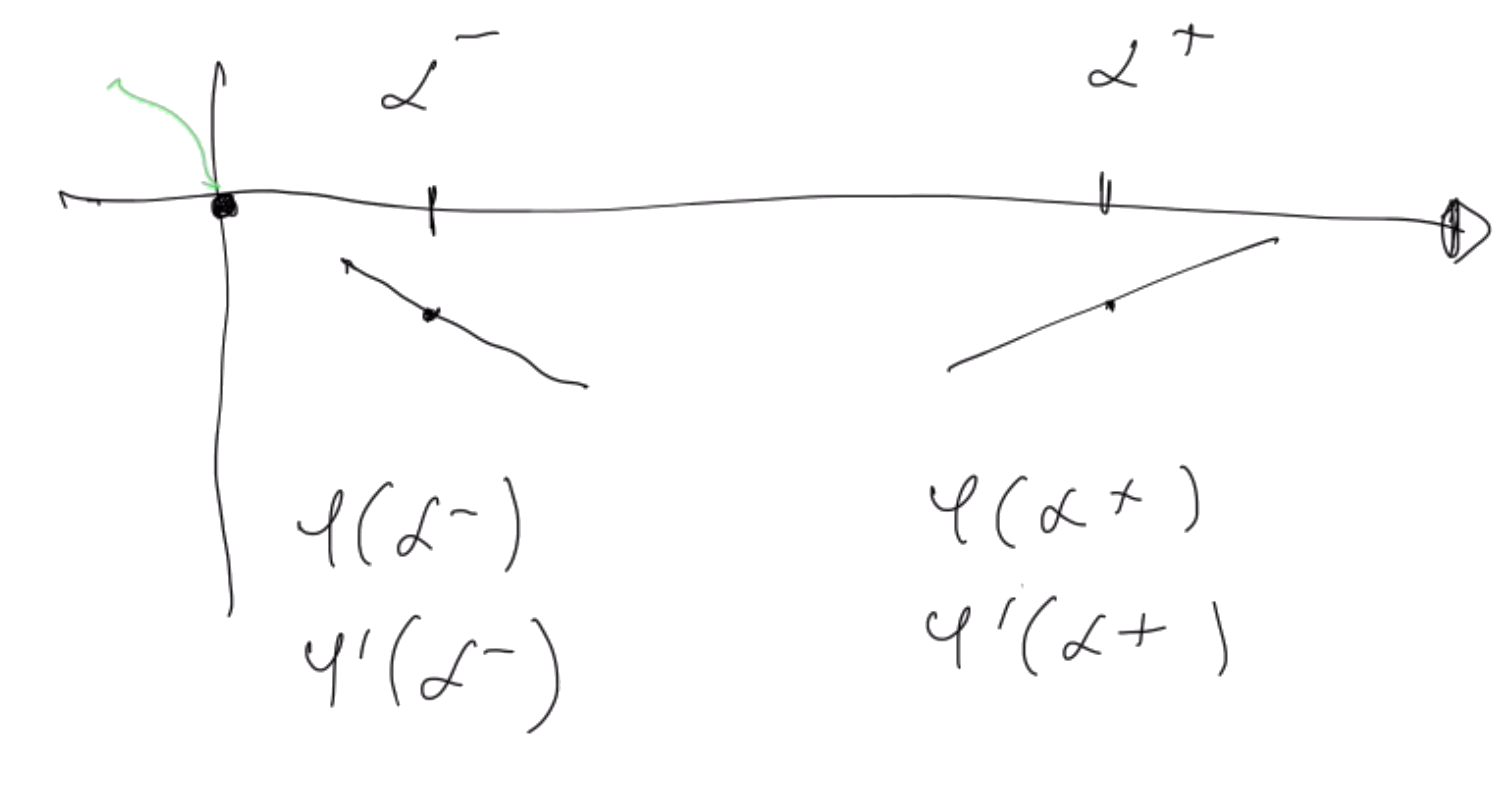 α⁻ α⁺
φ(α⁻) φ(α⁺)
φ'(α⁻) φ'(α⁺)